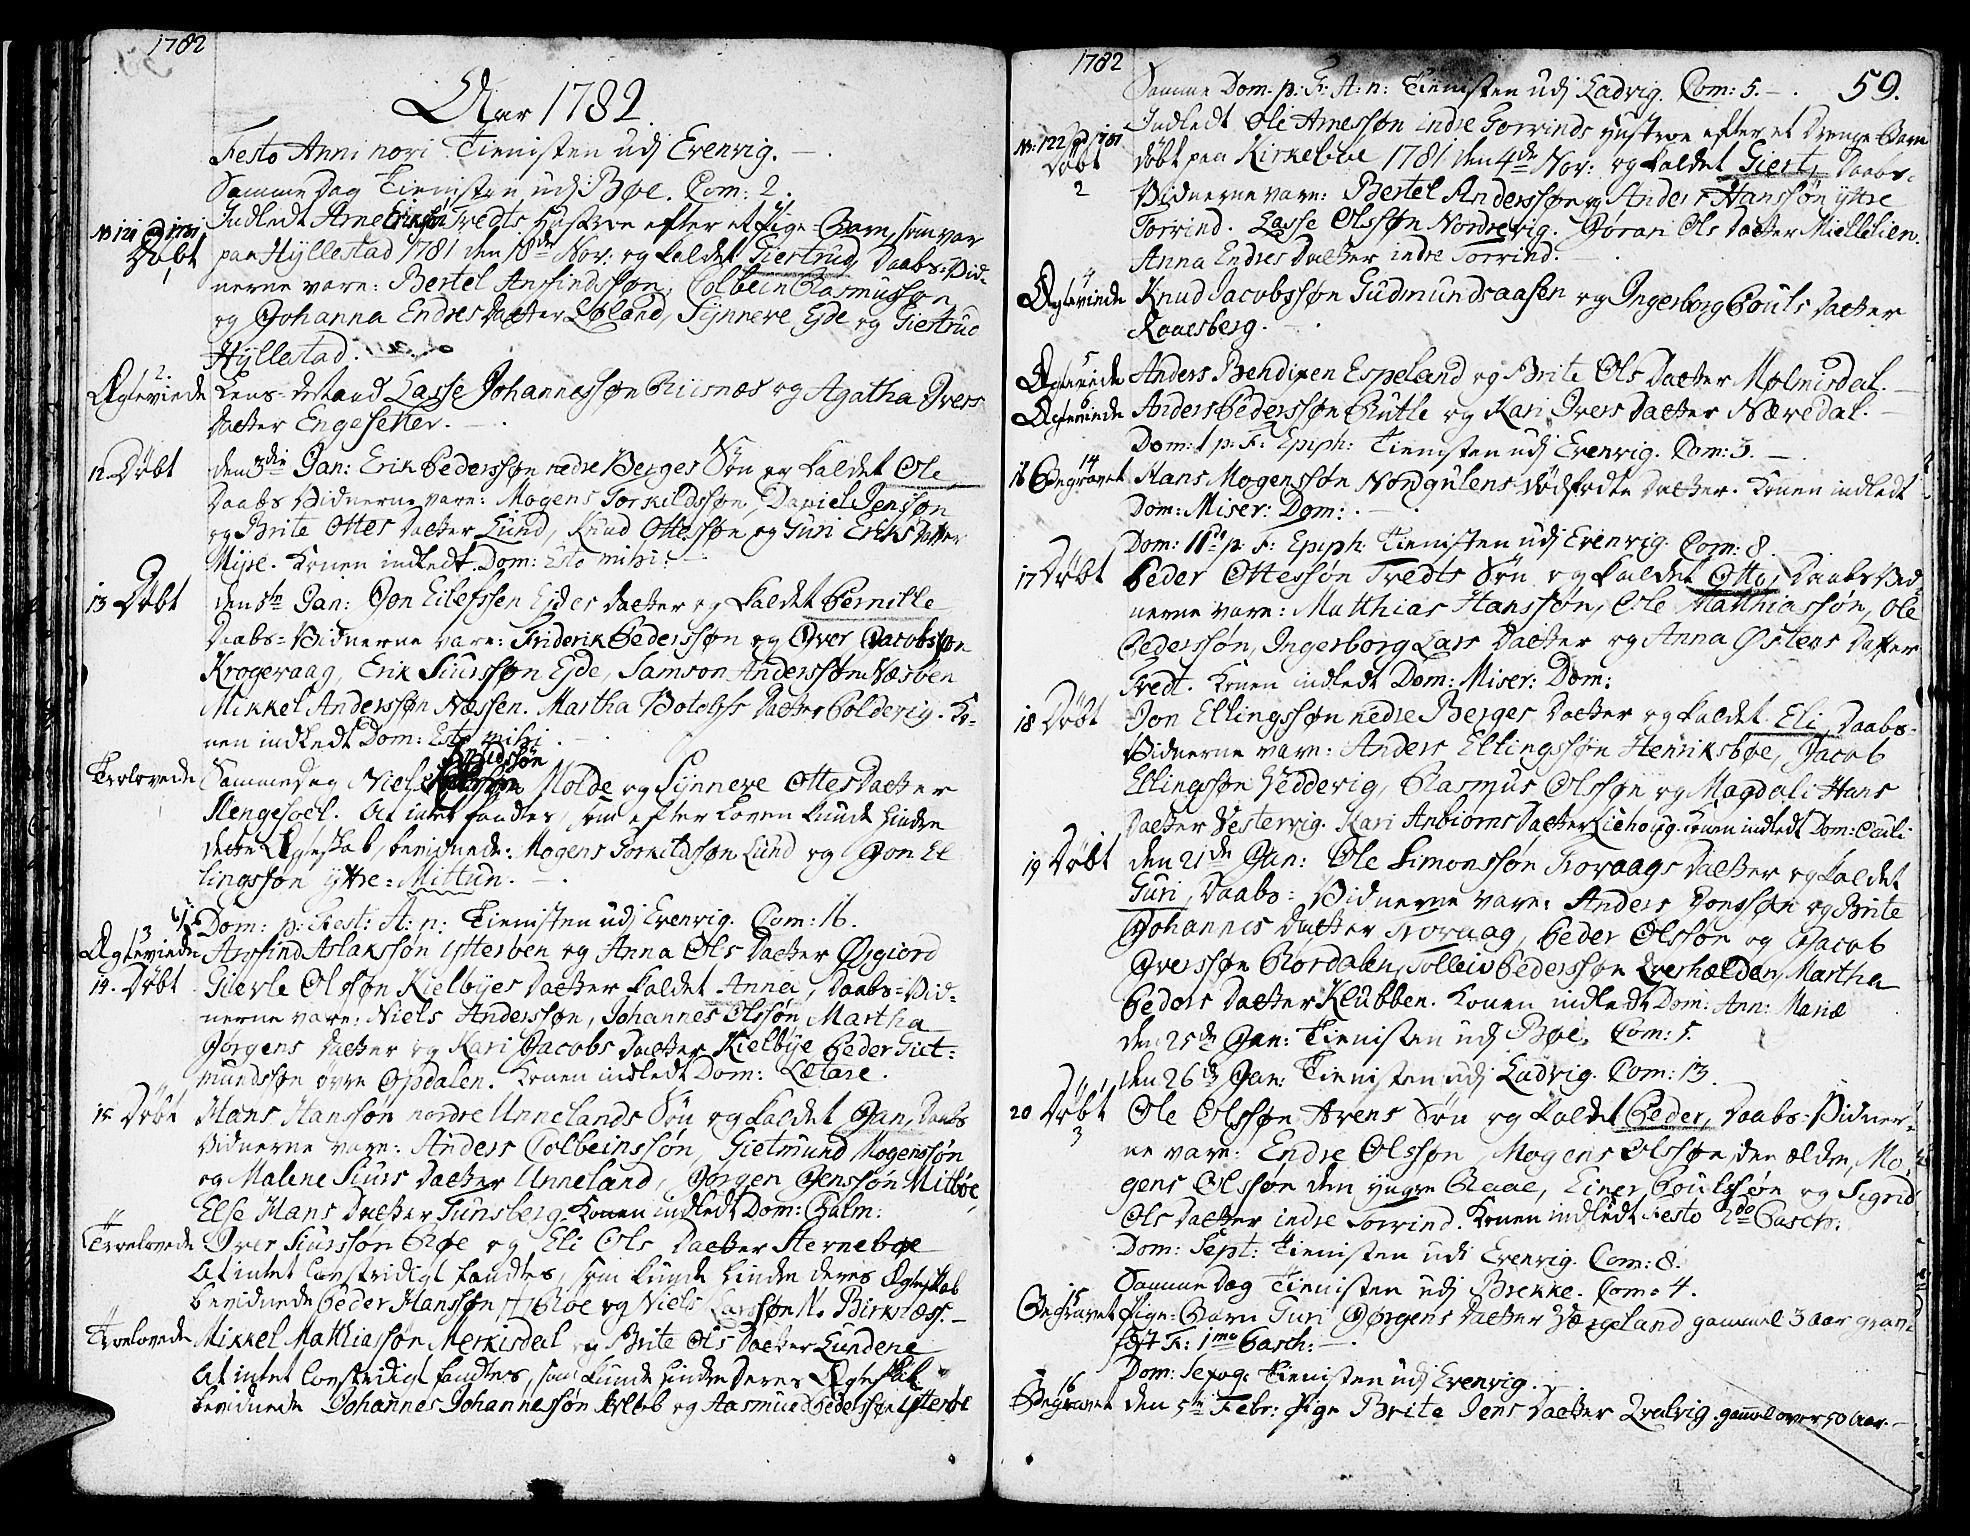 1782
Aar 1782.
Festo Anni novi Tienisten udj Evenvig. —
Samme Dag Tienisten udj Bøe. Com: 2.
N: 121 pro 1781 Indledt Arne Erikssøn Tredts Hustroe efter et Pige-Barn, som var
Døbt paa Hyllestad 1781 den 18de Nov: og kaldet Giertrud, Daabs-Vid-
1 nerne vare: Bertel Ansfindssøn, Colbein Rasmussøn
og Johanna Endres Datter Løland, Synneve Eide og Giertrud
Hyllestad.
2.
Ægteviede Lens-Destand Lasse Johannessøn Riisnæs og Agatha Ivers
Datter Engesetter. —
12 Døbt den 3die Jan: Erik Pederssøn nedre Berges Søn og kaldet Ole
Daabs Vidnerne vare: Mogens Torkildssøn, Daniel Jenssøn
og Brite Ottes Datter Lund, Knud Ottessøn og Guri Eriks Datter
Myre. Konen indledt Dom: Esto mihi: —
13 Døbt den 5te Jan: Jon Eilefssen Eides Datter og kaldet Pernille
Daabs-Vidnerne vare: Friderik Pederssøn og Iver Jacobssøn
Krogevaag, Erik Siurssøn Eide, Samson Anderssøn Næsben
Mikkel Anderssøn Næssen. Martha Botolfs Datter Poldevig. Ko-
nen indledt Dom: Esto mihi —
Knudssøn
Trolovede Samme dag Niels Molde og Synneve Ottes Datter
Slengesoel. At intet fandtes, som efter Loven kunde hindre
dette Ægteskab, bevidnede: Mogens Torkildssøn Lund og Jon El
lingssøn Yttre-Mittun. —
Dom: 1 p: Fest: A: n: Tienisten udj Evenvig. Com: 16.
3
Ægteviede Ansfind Aslakssøn Ytterøen og Anna Ols Datter Øygiord
14. Døbt Gierle Olssøn Kielbyes Datter kaldet Anna, Daabs-Vid-
nerne vare: Niels Anderssøn, Johannes Olssøn, Martha
Jørgens Datter og Kari Jacobs Datter Kielbye Peder Giet-
mundssøn øvre Opdalen. Konen indledt Dom: Lætare.
15 Døbt Hans Hanssøn nordre Unnelands Søn og kaldet Jan, Daabs
Vidnerne vare: Anders Colbeinssøn, Gietmund Mogenssøn
og Malene Siurs Datter Unneland, Jørgen Jenssøn Mitbøe,
Else Hans Datter Tunsberg. Konen indledt Dom: Palm:
Troelovede Iver Siurssøn Bøe og Eli Ols Datter Sternebøe
At intet Lovstridigt fandtes, som kunde hindre deres Ægteskab
bevidnede Peder Hanssøn Bøe og Niels Larssøn N. Birknæss. —
Troelovede Mikkel Matthiassøn Merkisdal og Brite Ols Datter Lundene
At intet Lovstridigt fandtes, som kunde hindre Deres Ægteskab
bevidnede Johannes Johannessøn og Aasmund Pederssøn Ytterøe
1782
59.
Samme Dom. p. F: A: n: Tienisten udj Ladvig. Com: 5. —
N: 122 pro 1781 Indledt Ole Arnessøn indre Torvinds Hustroe efter et Drenge-Barn
Døbt døbt paa Kirkebøe 1781 den 4de Nov: og kaldet Giert, Daabs-
2 Vidnerne vare: Bertel Anderssøn og Anders Hanssøn yttre
Torvind. Lasse Olssøn Nordrevig. Gørari Ols Datter Miellesien.
Anna Endres Datter indre Torvind. —
4
Ægteviede Knud Jacobssøn Gudmundsaasen og Ingerborg Pouls Datter
Raaesberg. —
5
Ægteviede Anders Bendixen Espeland og Brite Ols Datter Molmisdal. —
6
Ægteviede Anders Pederssøn Butle og Kari Ivers Datter Næredal. —
Dom: 1 p: F: Epiph: Tienisten udj Evenvig. Com: 3. —
14
16 Begravet Hans Mogenssøn Nordgulens Dødfødte Datter. Konen indledt
Dom: Miser: Dom: —
Dom: II p: F: Epiph: Tienisten udj Evenvig. Com: 8.
17 Døbt Peder Ottessøn Tredts Søn og kaldet Otto, Daabs Vid
nerne vare: Matthias Hanssøn, Ole Matthiassøn, Ole
Pederssøn, Ingerborg Lars Datter og Anna Østens Datter
Tredt. Konen indledt Dom: Miser: Dom:
18 Døbt Jon Ellingssøn nedre Berges Datter og kaldet Eli, Daabs-
Vidnerne vare: Anders Ellingssøn Henriksbøe, Jacob
Ellingssøn Veddevig, Rasmus Olssøn og Magdali Hans
Datter Vestervig. Kari Anbiørns Datter Liehoug. Konen indledt Dom: Oculi
19 Døbt den 21de Jan: Ole Simonssøn Rovaags Datter og kaldet
Guri, Daabs-Vidnerne vare: Anders Jonssøn og Brite
Johannes Datter Rovaag, Peder Olssøn og Jacob
Iverssøn Rørdalen, Tolleiv Pederssøn Qverhælden, Martha
Peders Datter Klubben. Konen indledt Dom: Ann: Mariæ
den 25de Jan: Tienisten udj Bøe. Com: 5.
den 26de Jan: Tienisten udj Ladvig. Com: 13.
20 Døbt Ole Olssøn Arens Søn og kaldet Peder, Daabs-Vidner-
3 ne vare: Endre Olssøn, Mogens Olssøn den ældre, Mo-
gens Olssøn den yngre Raae, Einer Poulssøn og Sigrid
Ols Datter indre Torvind. Konen indledt Festo 2do Pasch:
Dom: Sept: Tienisten udi Evenvig. Com: 8.
Samme Dag Tienisten udj Brekke. Com: 4.
15
Begravet Pige-Barn Guri Jørgens Datter Værgeland gammel 3 aar
F: 1mo Pasch: —
Dom: Sexag: Tienisten udj Evenvig.
16
Begravet den 5te Febr: Pige Brite Jens Datter Qvalvig. gammel over 50 Aar. —